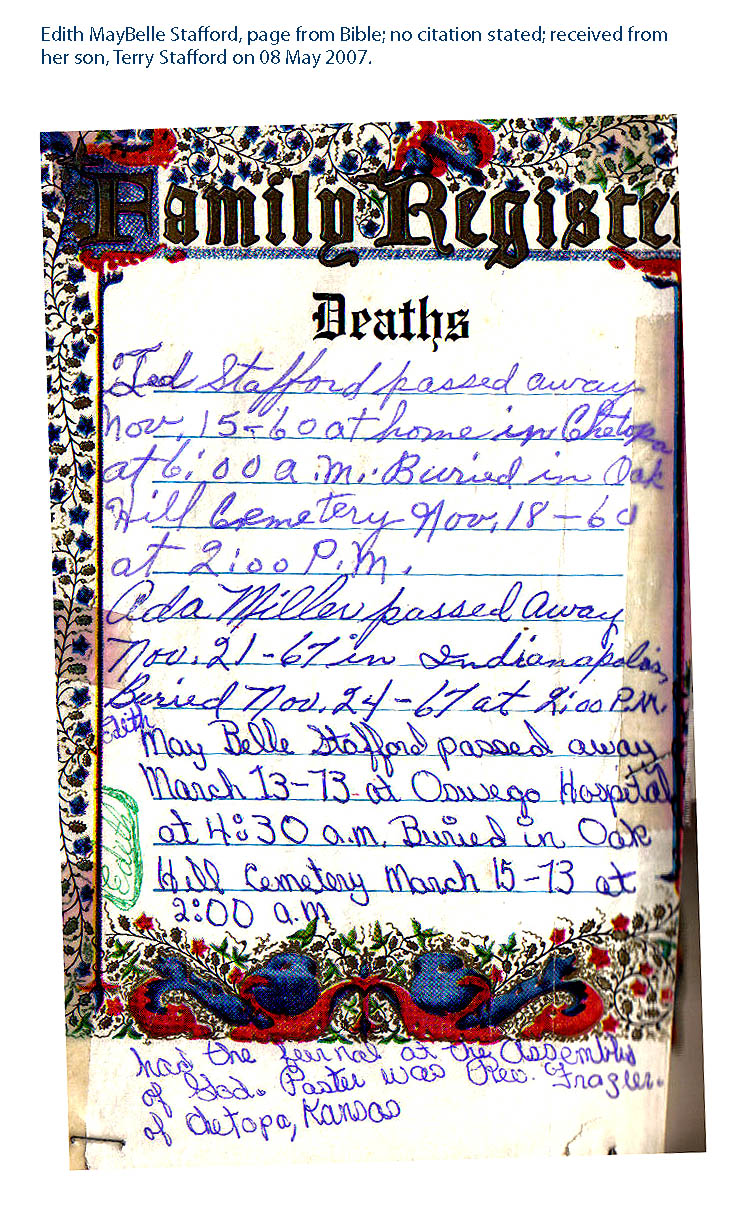 Edith MayBelle Stafford, page from Bible; no citation stated; received from
her son, Terry Stafford on 08 May 2007.
Family Register
Deaths
Ted Stafford passed away
Nov. 15-60 at home in Chetopa
at 6:00 a.m. Buried in Oak
Hill Cemetery Nov. 18-60
at 2:00 P.M.
Ada Miller passed away
Nov. 21-67 in Indianapolis
Buried Nov. 24-67 at 2:00 P.M.
Edith
May Belle Stafford passed away
March 13-73 at Oswego Hospital
at 4:30 a.m. Buried in Oak
Edith
Hill Cemetery March 15-73 at
2:00 a.m
had the feurnal at the Assemblid
of God. Paster was Rev. Frazier.
of Chetopa, Kansas